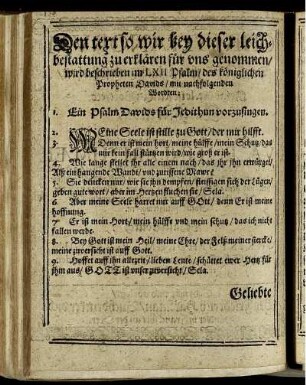 Den text so wir bey dieser leich-
bestattung zu erklären für uns genommen/
wird beschrieben im LXII Psalm/ des königlichen
Propheten Davids/ mit nachfolgenden
Worten:
1. Ein Psalm Davids für Jedithun vorzusingen.
2. MEine Seele ist stille zu Gott/ der mir hilfft.
3. Denn er ist mein hort/ meine hülffe/ mein Schutz/ das
mich kein fall stürtzen wird/ wie groß er ist.
4. Wie lange stellet ihr alle einem nach/ das ihr ihn erwürget/
Als ein hangende Wand/ und zurissene Mawr?
5. Sie dencken nur/ wie sie ihn dempfen/ fleissigen sich der Lügen/
geben gute wort/ aber im Hertzen fluchen sie/ Sela.
6. Aber meine Seele harret nur auff GOtt/ denn Er ist meine
hoffnung.
7. Er ist mein Hort/ mein hülffe und mein schutz/ das ich nicht
fallen werde.
8. Bey Gott ist mein Heil/ meine Ehre/ der Felß meiner stercke/
meine zuversicht ist auff Gott.
9. Hoffet auff ihn allezeit/ lieben Leute/ schüttet ewer Hertz für
ihm aus/ GOTT ist unser zuversicht/ Sela.
Geliebte